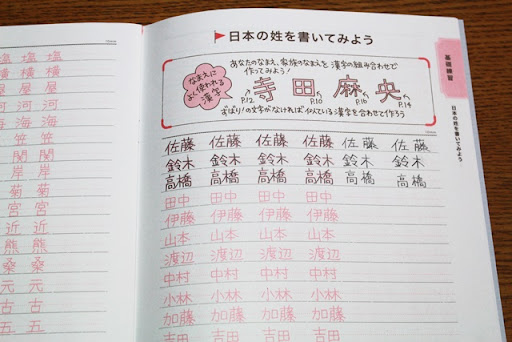 塩 塩 塩
横 横 横
屋 屋 屋
河 河 河
海 海 海
笠 笠
関 関
岸 岸
菊 菊
宮 宮
近 近
熊 熊
桑 桑
元 元
古 古
五 五
日本の姓を書いてみよう
あなたのなまえ、家族のなまえを 漢字の組み合わせで
作ってみよう!
なまえに
よく使われる
漢字
寺 田 麻 央
P.12 P.10 P.16 P.14
ずばり!の文字がなければ似ている漢字を合わせて作ろう
佐藤 佐藤 佐藤 佐藤 佐藤 佐藤
鈴木 鈴木 鈴木 鈴木 鈴木 鈴木
高橋 高橋 高橋 高橋 高橋 高橋
田中 田中 田中 田中
伊藤 伊藤 伊藤 伊藤
山本 山本 山本 山本
渡辺 渡辺 渡辺 渡辺
中村 中村 中村 中村
小林 小林 小林 小林
加藤 加藤 加藤 加藤
吉田 吉田 吉田 吉田
基礎練習
日本の姓を書いてみよう